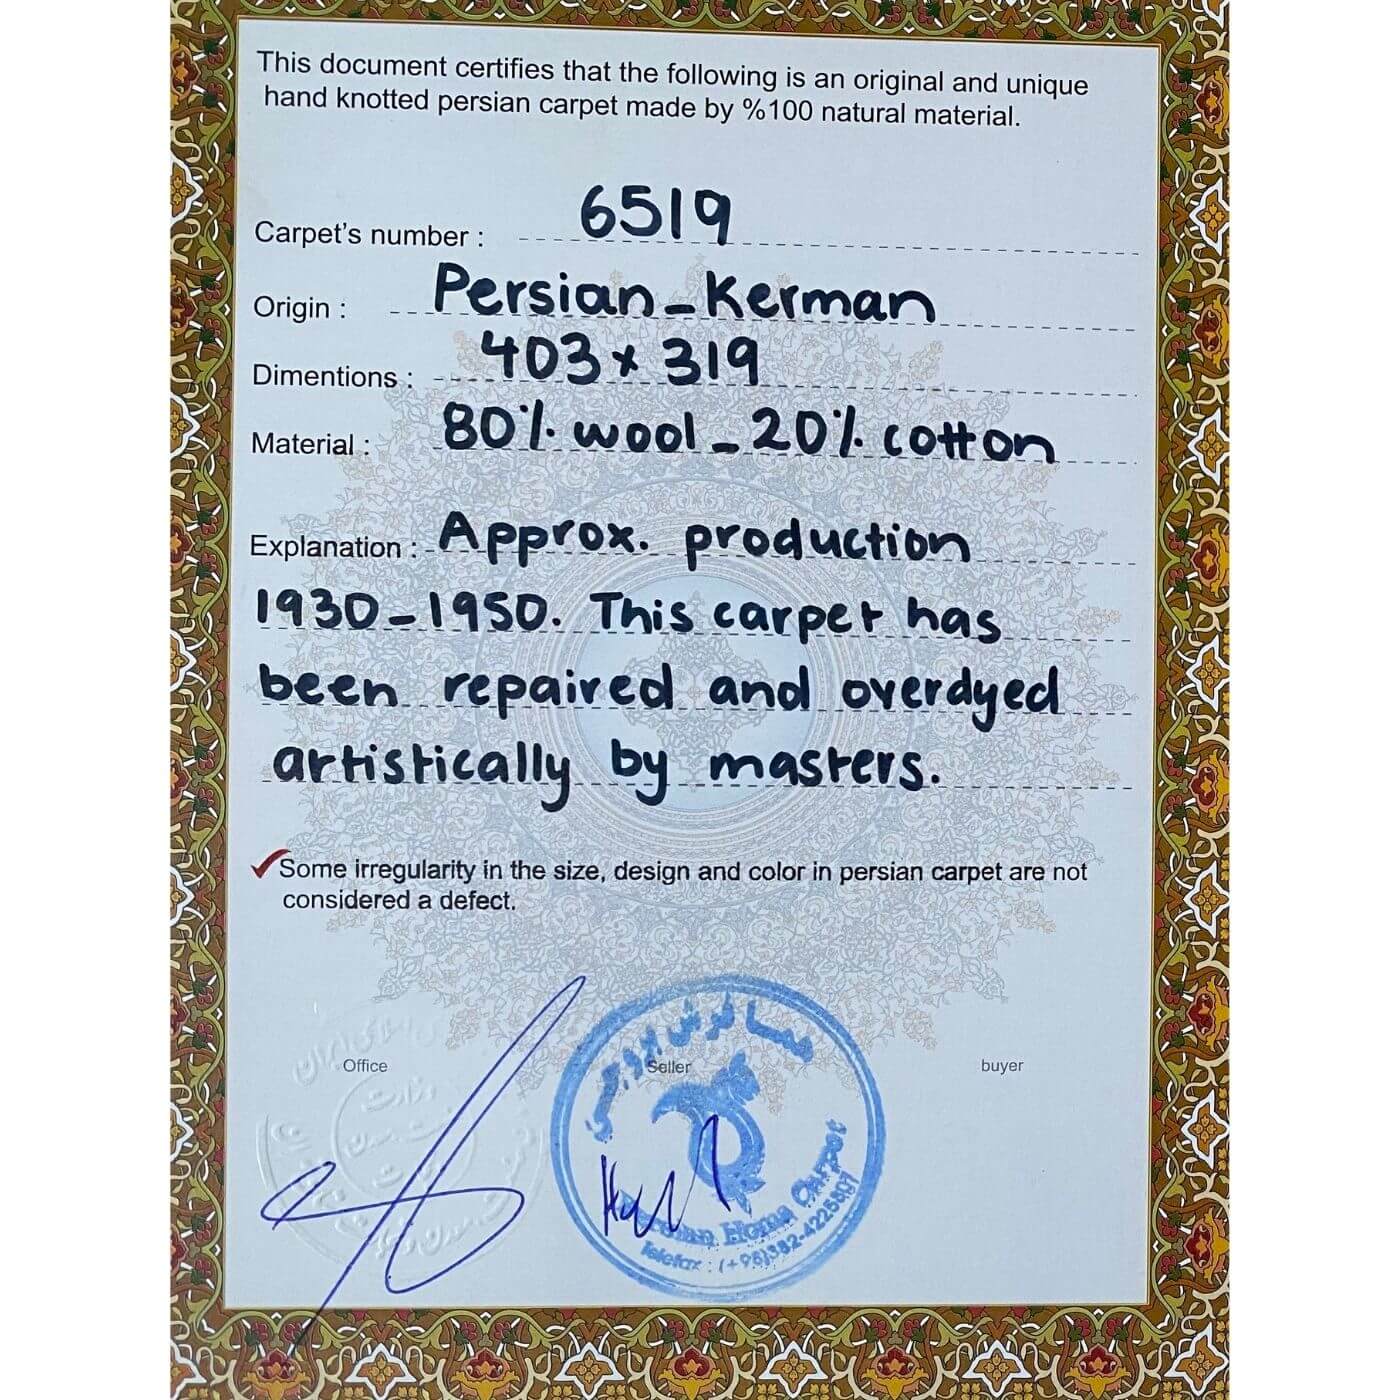 This document certifies that the following is an original and unique
hand knotted persian carpet made by %100 natural material.
Carpet's number : 6519
Origin : Persian-Kerman
Dimentions : 403 x 319
Material : 80% wool-20% cotton
Explanation : Approx. production
1930-1950. This carpet has
been repaired and overdyed
artistically by masters.
Some irregularity in the size, design and color in persian carpet are not
considered a defect.
Office Seller buyer
Home Carpet
Telefax :